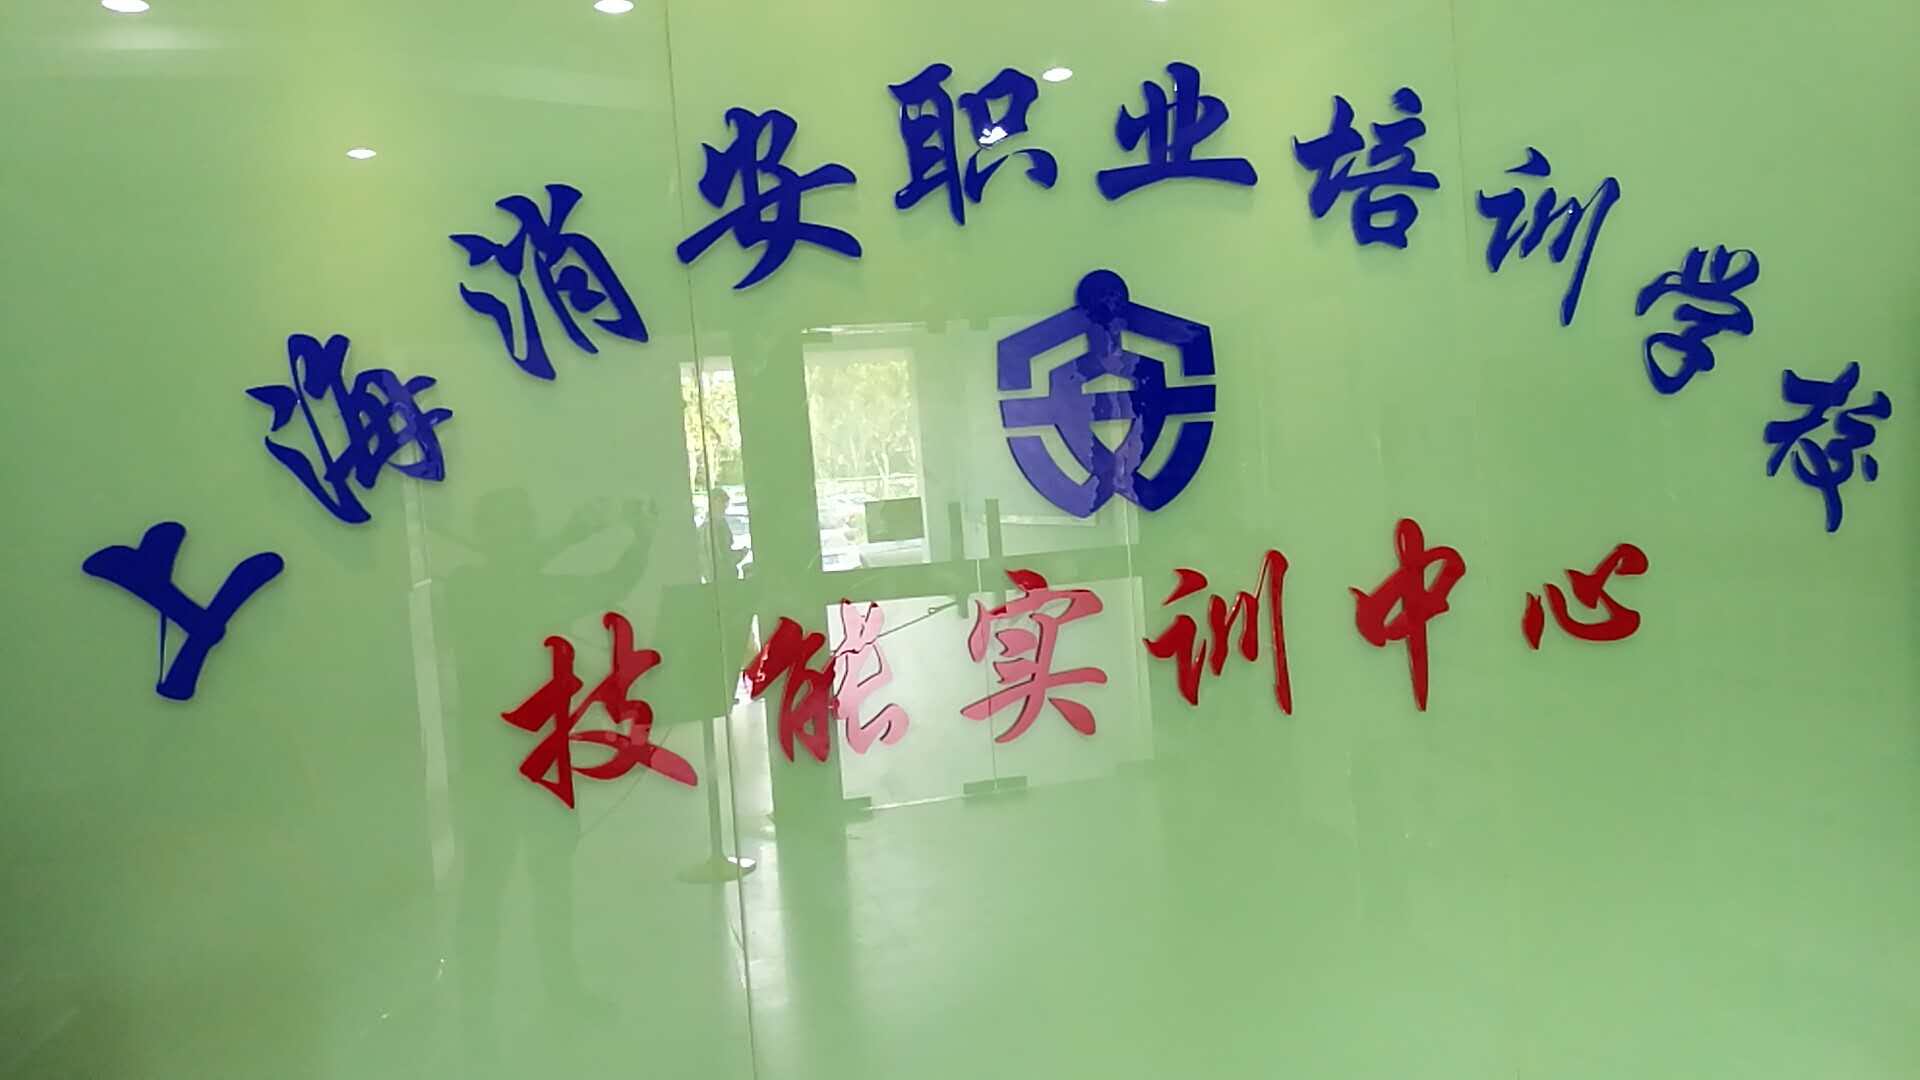 上海消安职业培训学校
技能实训中心